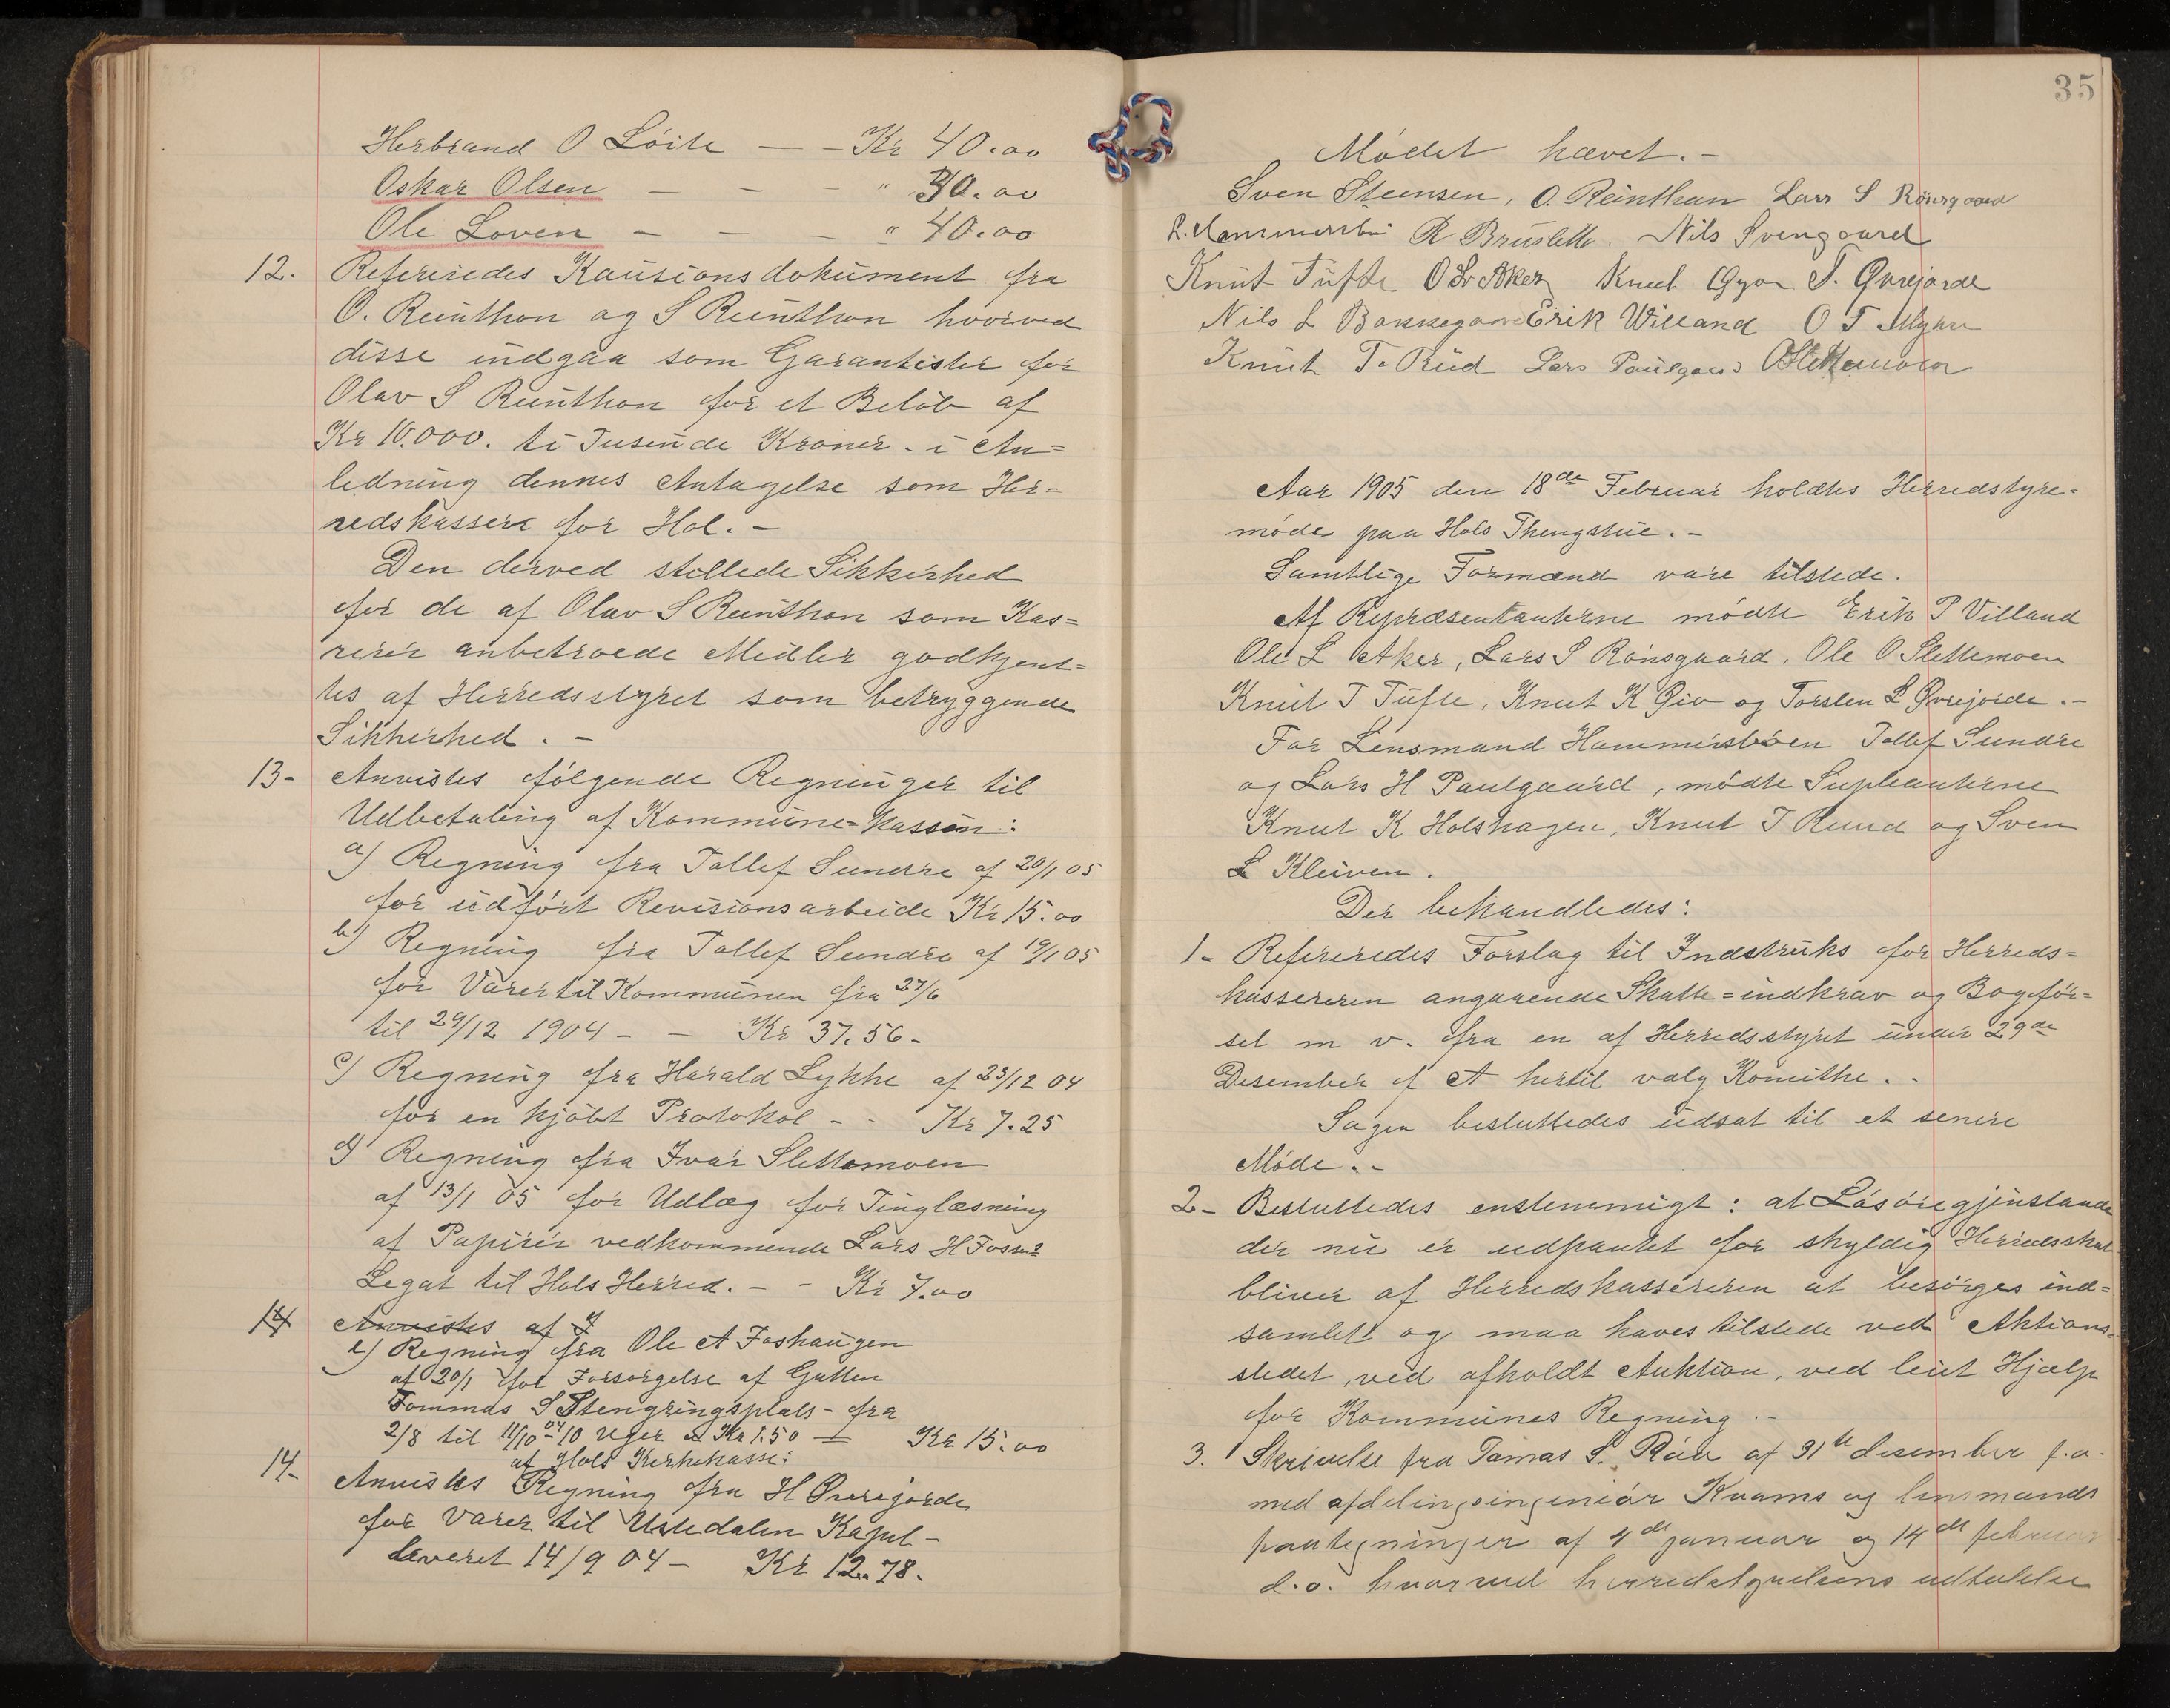 Herbrand O Löite — - Kr 40.00
Oskar Olsen — - - " 30.00
Ole Loven — - — " 40.00
12. Refereredes Kautionsdokument fra
O. Reinthon og S Reinthon hvorved
disse indgaa som Garantister for
Olav S Reinthon for et Beløb af
Kr 10.000. ti Tusinde Kroner. i An=
ledning dennes Antagelse som Her=
redskasserer for Hol. -
Den derved stillede Sikkerhed
for de af Olav S Reinthon som Kas=
rerer anbetroede Midler godkjent=
tes af Herredsstyret som betryggende
Sikkerhed. -
13- Anvistes følgende Regninger til
Udbetaling af Kommune=kassen:
a) Regning fra Tollef Sundre af 20/1 05
for udført Revisionsarbeide Kr 15.00
b) Regning fra Tollef Sundre af 19/1 05
for Varer til Kommunen fra 27/6
til 29/12 1904 - - Kr 37.56-
c) Regning fra Harald Lykke af 23/12 04
for en kjøbt Protokol - - Kr 7.25
d) Regning fra Ivar Slettemoen
af 13/1 05 for Udlæg for Tinglæsning
af Papirer vedkommende Lars H Fosses
Legat til Hols Herred. - - Kr 7.00
14 Anvistes af
e) Regning fra Ole A Foshaugen
af 20/1 for Forsørgelse af Gutten
Tommas S Stengringsplads - fra
2/8 til 11/10 04 - 10 Uger a Kr 1.50 — Kr 15.00
af Hols Kirkekasse:
14- Anvistes Regning fra H Øvrejorde
for Varer til Ustedalen Kapel -
leveret 14/9 04 - Kr 12.78.
35
Mødet hævet. -
Sven Steensen, O. Reinthon Lars S Rønsgaard
R Bruslette. Nils Svengaard
Knut Tufte O L Aker Knut Gjo T. Øvrejorde
Nils L Bakkegaard Erik Willand O T Myhre
Knut T. Rud Lars Paulgaard O Slettemoen
Aar 1905 den 18de Februar holdtes Herredstyre-
møde paa Hols Thengstue. -
Samtlige Formænd vare tilstede.
Af Repræsentanterne mødte Erik P Villand
Ole L Aker, Lars S Rønsgaard, Ole O Slettemoen
Knut T Tufte, Knut K Gjo og Torsten L Øvrejorde. -
For Lensmand Hammersbøen Tollef Sundre
og Lars H Paulgaard, mødte Supleanterne
Knut K Holshagen, Knut T Ruud og Sven
L Kleiven.
Der behandledes:
1- Refereredes Forslag til Indstruks for Herreds=
kassereren angaaende Skatte=indkrav og Bogfør=
sel m v. fra en af Herredsstyret under 29de
Desember f A hertil valg Komithe. -
Sagen besluttedes udsat til et senere
Møde. -
2- Besluttedes enstemmigt: at Løsøregjenstande
der nu er udpantet for skyldig Herredsskat
bliver af Herredskassereren at besørges ind=
samlet og maa haves tilstede ved Aktions-
stedet, ved afholdt Auktion, ved leiet Hjælp
for Kommunes Regning. -
3. Skrivelse fra Tomas S. Röie af 31te desember f.a.
med afdelingsingeniør Kvams og lensmands
paategninger af 4de januar og 14de februar
d.a. hvorved herredstyrelsens udtalelse